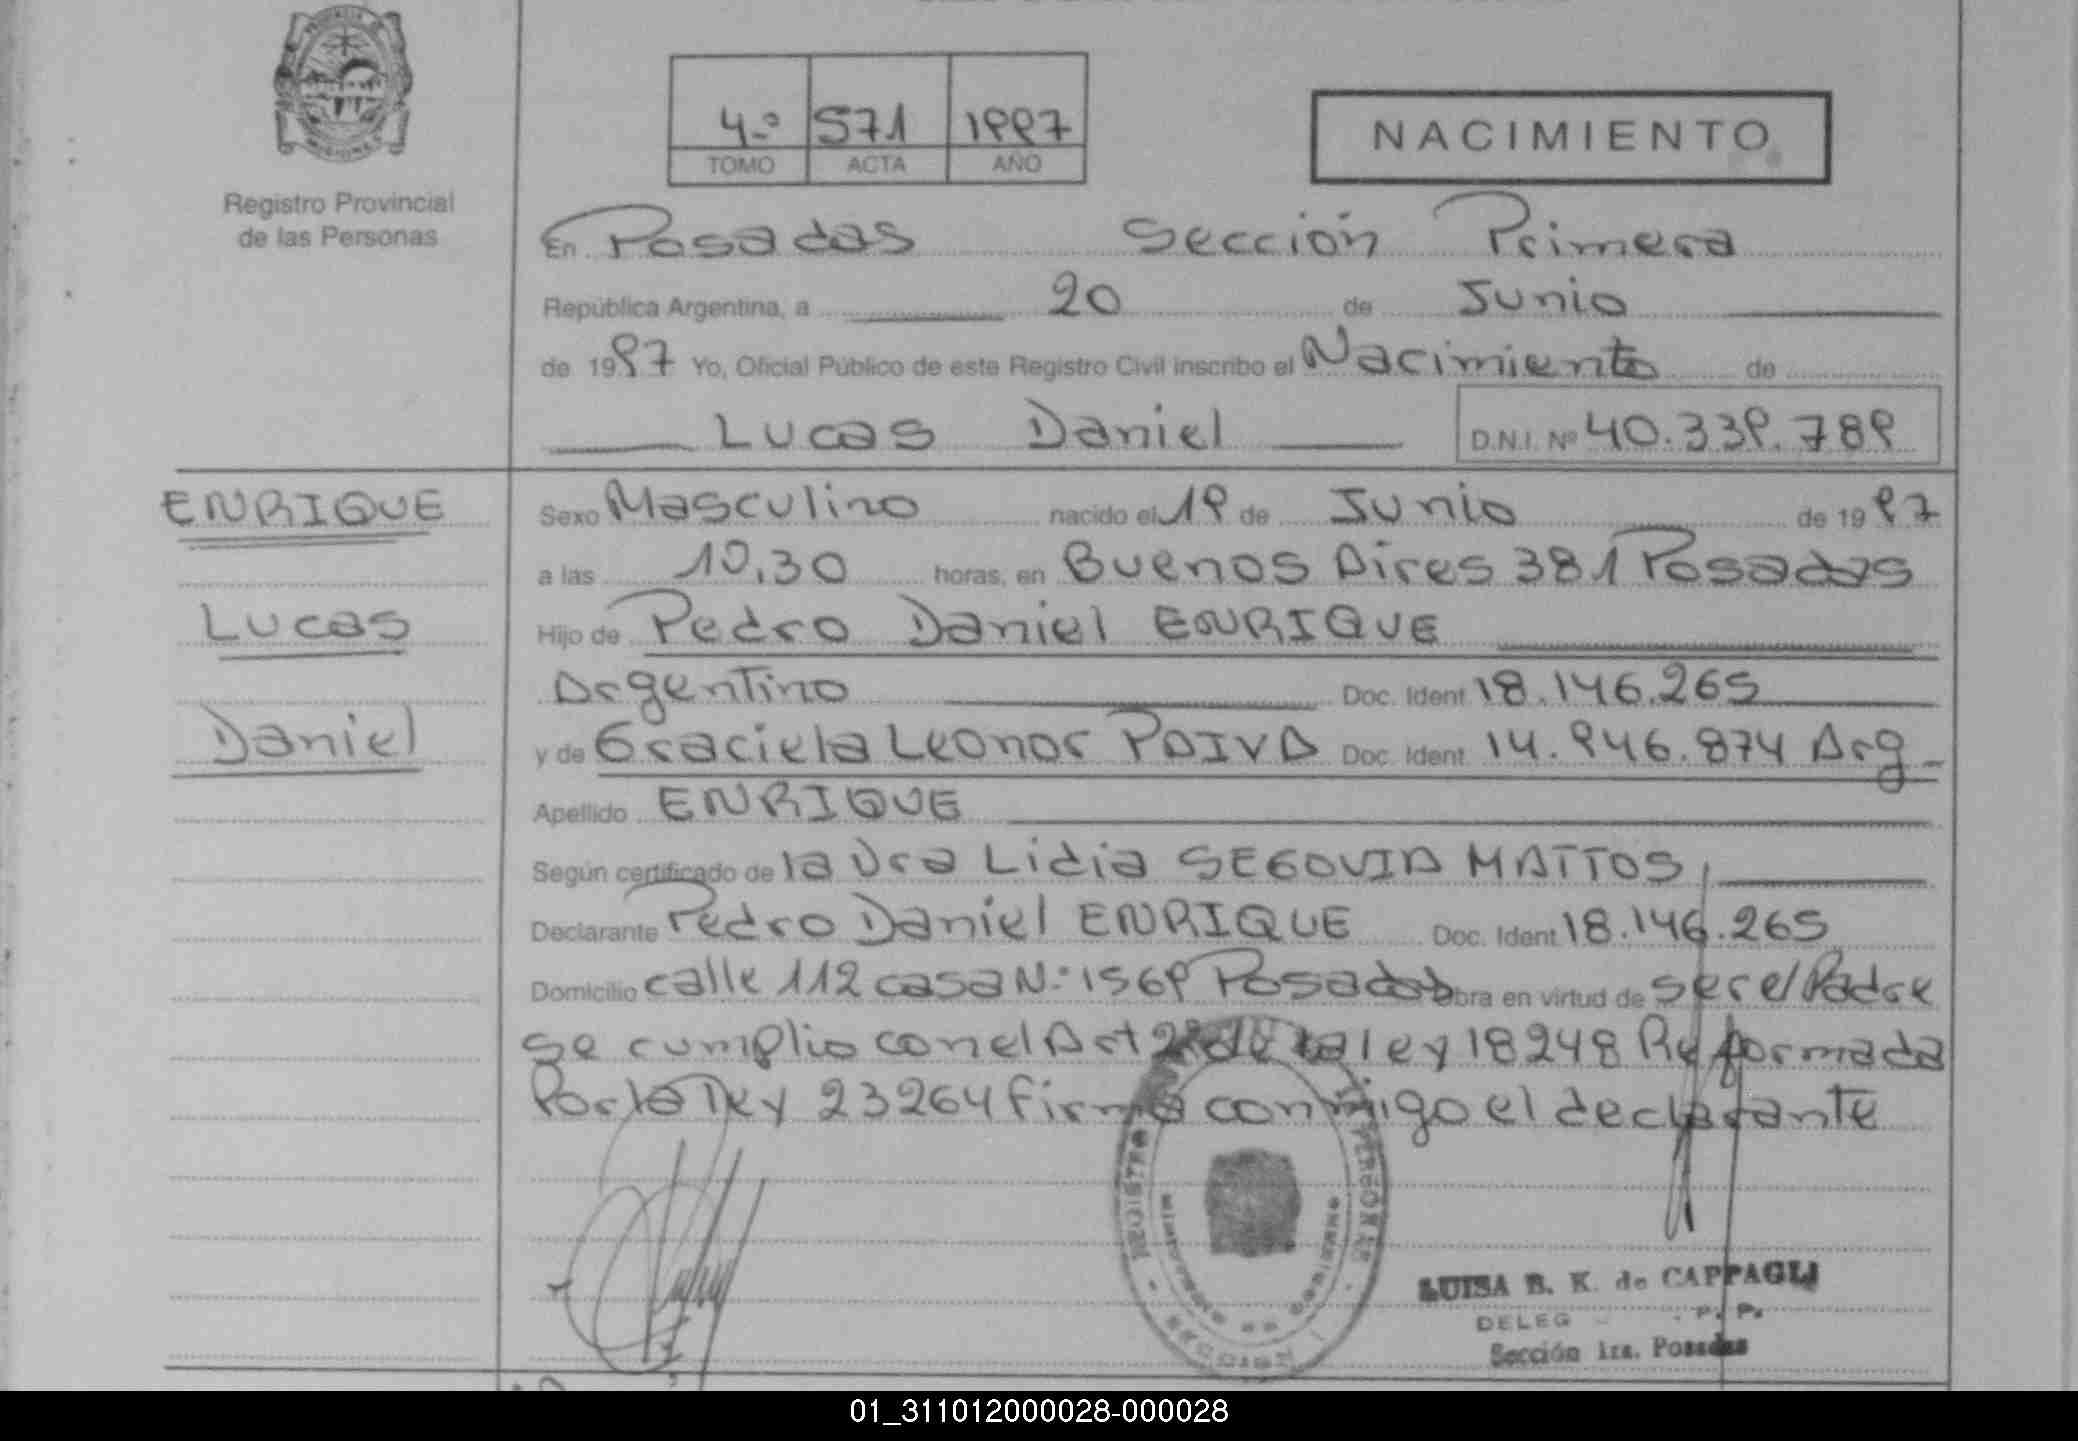 4.º 571 1997
TOMO ACTA AÑO
NACIMIENTO
Registro Provincial
de las Personas
En Posadas Sección Primera
República Argentina, a 20 de Junio
de 1997 Yo, Oficial Público de este Registro Civil inscribo el Nacimiento de
Lucas Daniel D.N.I. Nº 40.339.789
ENRIQUE
Lucas
Daniel
Sexo Masculino nacido el 19 de Junio de 1997
a las 10,30 horas, en Buenos Aires 381 Posadas
Hijo de Pedro Daniel ENRIQUE
Argentino Doc. Ident. 18.146.265
y de Graciela Leonor PAIVA Doc. Ident. 14.946.874 Arg
Apellido ENRIQUE
Según certificado de la Dra Lidia SEGOVIA MATTOS,
Declarante Pedro Daniel ENRIQUE Doc. Ident. 18.146.265
Domicilio calle 112 casa N.º 1569 Posadas Obra en virtud de ser el Padre
se cumplio con el Art de la ley 18248 Reformada
Por la ley 23264 firma conmigo el declarante
REGISTRO PERSONAS
MISIONES
LUISA B. K. de CAPPAGLI
DELEG P. P.
Sección 1ra. Posadas
01_311012000028-000028